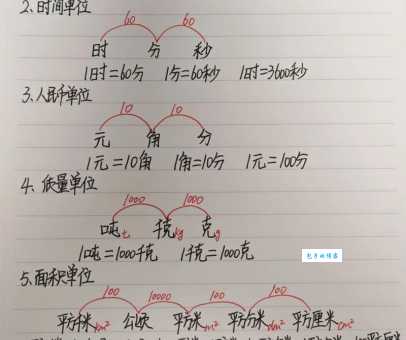 2、时间单位
60 60
时 分 秒
1时=60分 1分=60秒 1时=3600秒
3、人民币单位
10 10
元 角 分
1元=10角 1角=10分 1元=100分
4、质量单位
1000 1000
吨t 千克kg 克g
1吨=1000千克 1千克=1000克
5、面积单位
100 10000 100 100
平方千米km² 公顷 平方米m² 平方分米dm² 平方厘米cm²